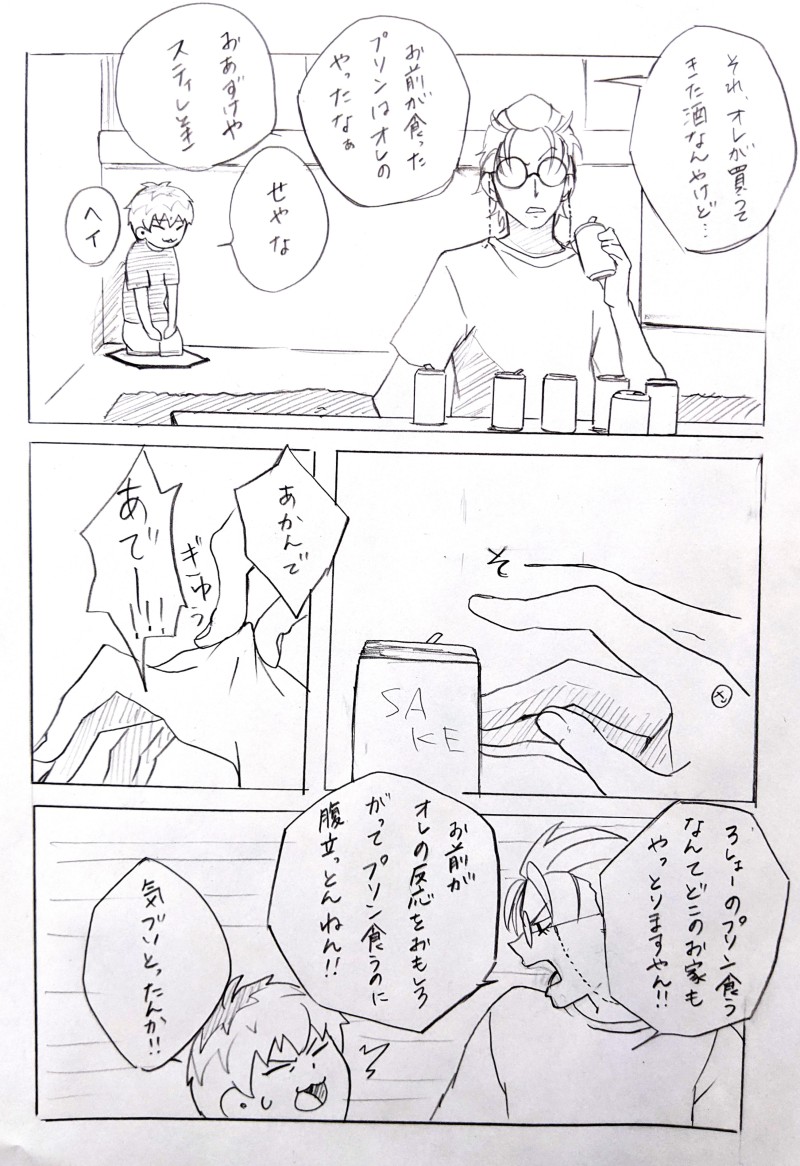 それ、オレが買って
きた酒なんやけど…
お前が食った
プリンはオレの
やったなぁ
せやな
おあずけや
ヘイ
そ
SA
KE
あかんで
ぎゅっ
あでー!!!
ろしょーのプリン食う
なんてどこのお家も
やっとりますやん!!
お前が
オレの反応をおもしろ
がってプリン食うのに
腹立っとんねん!!
気づいとったんか!!